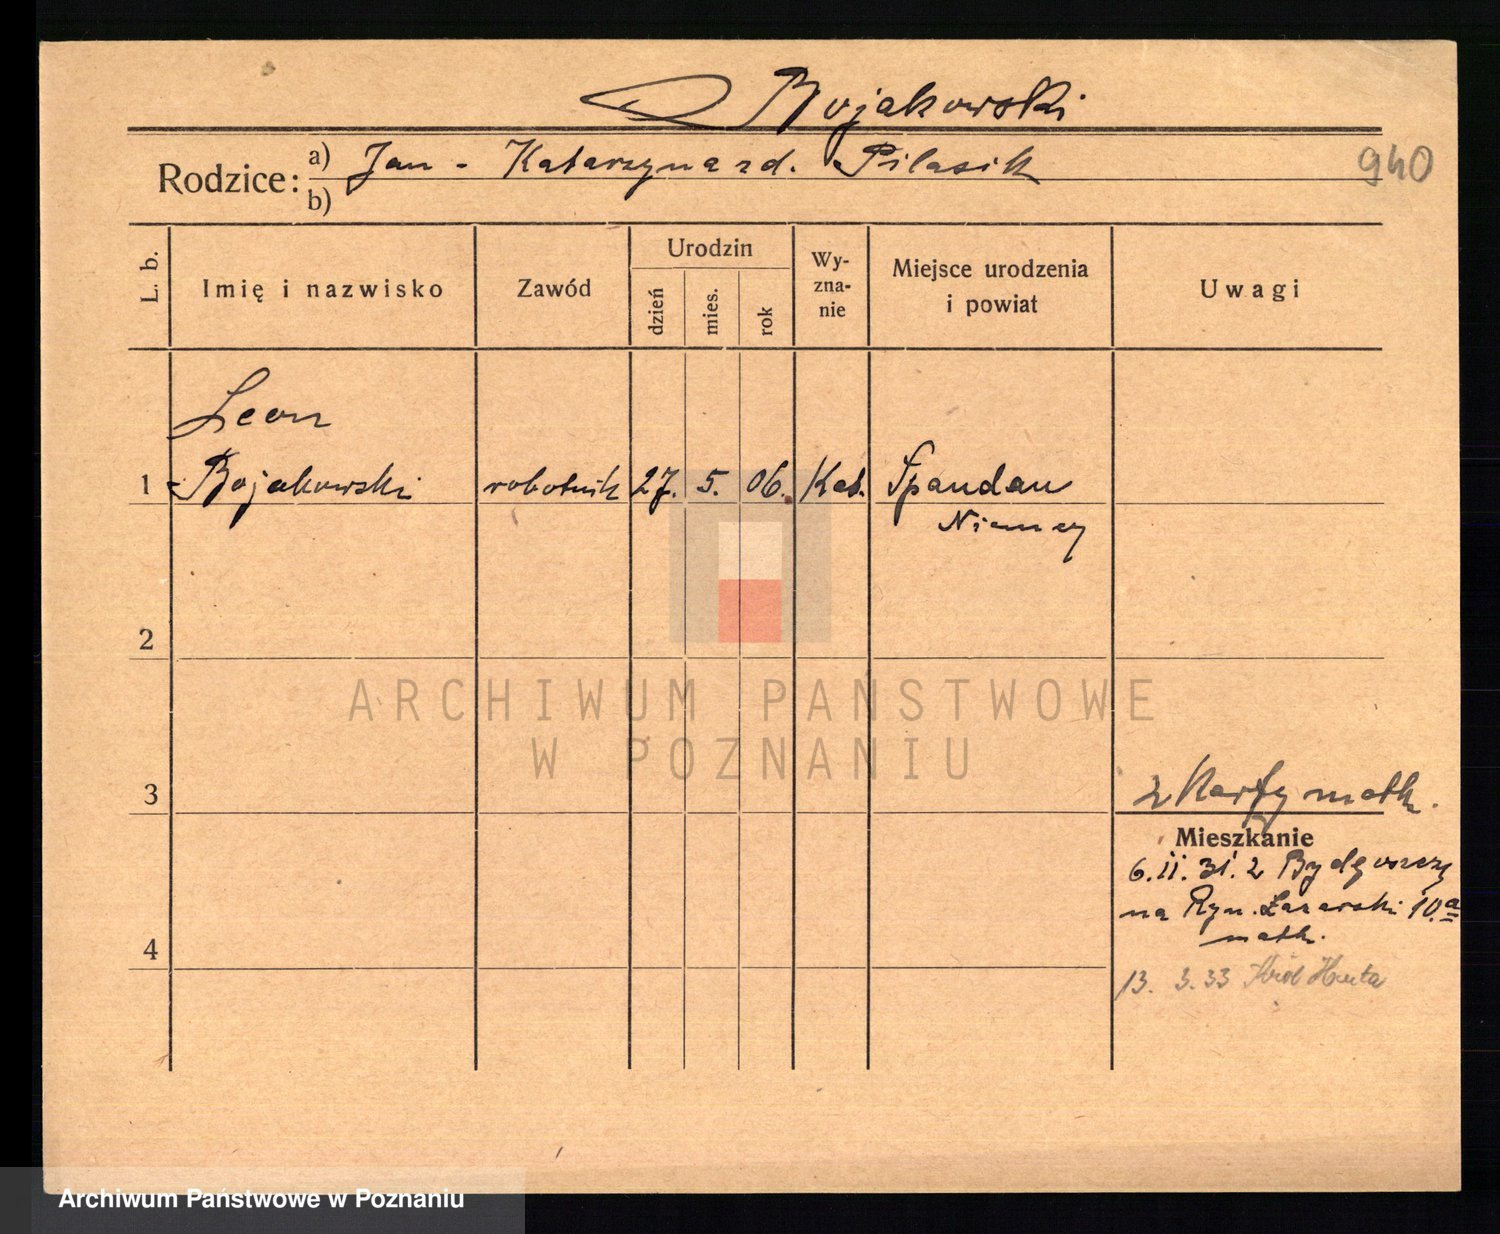 Bojakowski
Rodzice: a) Jan - Katarzyna zd. Pilasik
b)
940
L. b.
Imię i nazwisko
Zawód
Urodzin
dzień
mies.
rok
Wy-
zna-
nie
Miejsce urodzenia
i powiat
Uwagi
Leon
1 Bojakowski robotnik 27. 5. 06. Kat. Spandau
Niemcy
2
ARCHIWUM PAŃSTWOWE
W POZNANIU
3
z Karty matk.
Mieszkanie
6.II.31. z Bydgoszczy
na Ryn. Łazarski 10.a
matk.
4
13. 3. 33 Król Huta
Archiwum Państwowe w Poznaniu